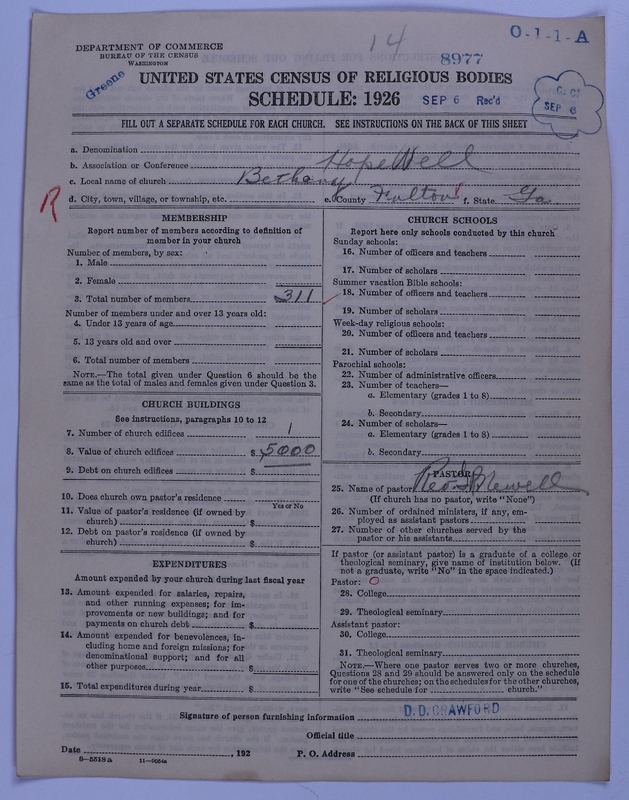 14
O-1-1-A
DEPARTMENT OF COMMERCE
BUREAU OF THE CENSUS
WASHINGTON
8977
Greene
UNITED STATES CENSUS OF RELIGIOUS BODIES
SCHEDULE: 1926
SEP 6 Rec'd
SEP 6
FILL OUT A SEPARATE SCHEDULE FOR EACH CHURCH. SEE INSTRUCTIONS ON THE BACK OF THIS SHEET
a. Denomination
b. Association or Conference HopeWell
c. Local name of church Bethany
R
d. City, town, village, or township, etc. e. County Fulton f. State Ga
MEMBERSHIP
Report number of members according to definition of
member in your church
Number of members, by sex:
1. Male
2. Female
3. Total number of members 311
Number of members under and over 13 years old:
4. Under 13 years of age
5. 13 years old and over
6. Total number of members
NOTE.—The total given under Question 6 should be the
same as the total of males and females given under Question 3.
CHURCH BUILDINGS
See instructions, paragraphs 10 to 12
7. Number of church edifices 1
8. Value of church edifices $ 5000
9. Debt on church edifices $
10. Does church own pastor's residence
Yes or No
11. Value of pastor's residence (if owned by
church) $
12. Debt on pastor's residence (if owned by
church) $
EXPENDITURES
Amount expended by your church during last fiscal year
13. Amount expended for salaries, repairs,
and other running expenses; for im-
provements or new buildings; and for
payments on church debt $
14. Amount expended for benevolences, in-
cluding home and foreign missions; for
denominational support; and for all
other purposes $
15. Total expenditures during year $
CHURCH SCHOOLS
Report here only schools conducted by this church
Sunday schools:
16. Number of officers and teachers
17. Number of scholars
Summer vacation Bible schools:
18. Number of officers and teachers
19. Number of scholars
Week-day religious schools:
20. Number of officers and teachers
21. Number of scholars
Parochial schools:
22. Number of administrative officers
23. Number of teachers—
a. Elementary (grades 1 to 8)
b. Secondary
24. Number of scholars—
a. Elementary (grades 1 to 8)
b. Secondary
PASTOR
25. Name of pastor Rev Newell
(If church has no pastor, write "None")
26. Number of ordained ministers, if any, em-
ployed as assistant pastors
27. Number of other churches served by the
pastor or his assistants
If pastor (or assistant pastor) is a graduate of a college or
theological seminary, give name of institution below. (If
not a graduate, write "No" in the space indicated.)
Pastor: O
28. College
29. Theological seminary
Assistant pastor:
30. College
31. Theological seminary
NOTE.—Where one pastor serves two or more churches,
Questions 28 and 29 should be answered only on the schedule
for one of the churches; on the schedules for the other churches,
write "See schedule for church."
Signature of person furnishing information D. D. CRAWFORD
Official title
Date , 192 P. O. Address
8—5518a 11—9054a